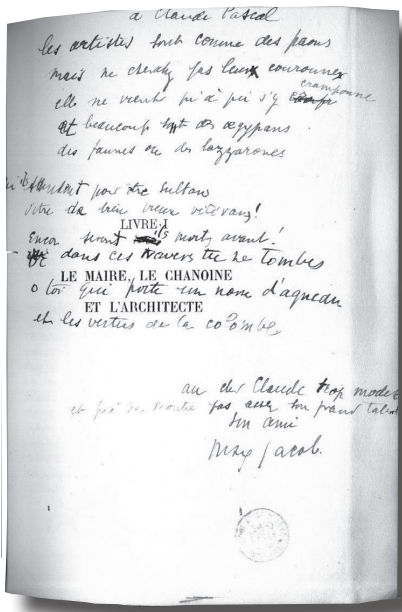 à Claude Pascal
les artistes sont comme des paons
mais ne cherche pas leur couronne
elle ne vient qu'à qui s'y cramponne
et beaucoup sont des ægypans
des faunes ou des lazzarones
qui attendent pour être sultans
d'être de bien vieux vétérans!
LIVRE I
Encor seront ils morts avant!
dans ces travers tu ne tombes
LE MAIRE, LE CHANOINE
o toi qui porte un nom d'agneau
ET L'ARCHITECTE
et les vertus de la colombe,
au cher Claude trop modeste
et qui ne montre pas assez son grand talent
son ami
Max Jacob.